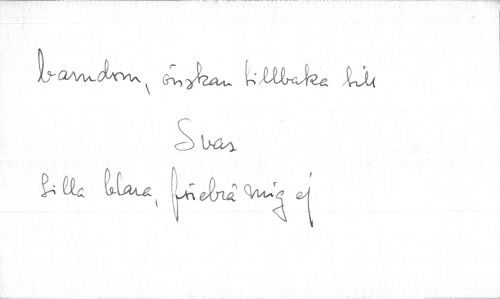 barndom, önskan tillbaka till
Svar
Lilla Clara, förebrå mig ej